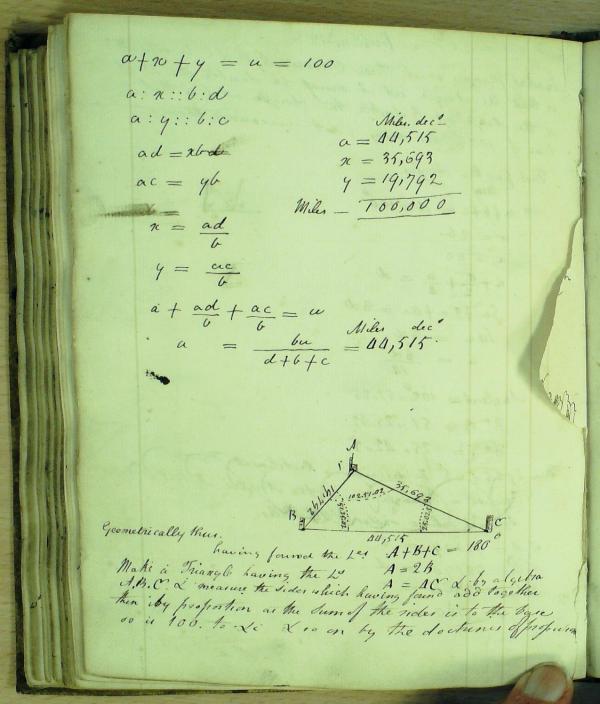 a + x + y = u = 100
a : x :: b : d
a : y :: b : c
ad = xb
ac = yb
Miles. decˢ
a = 44,515
x = 35,693
y = 19,792
Miles - 100,000
x = ad/b
y = ac/b
a + ad/b + ac/b = u
Miles decˢ
a = bu/d+b+c = 44,515
A
B
C
19,792
35,693
44,515
Geometrically thus.
having found the Lˢ A+B+C = 180°
Make a Triangle having the Lˢ A = 2B
A.B.C. & measure the sides which having found add together
then by proportion as the sum of the sides is to the base
so is 100. to &c & so on by the doctrines of proportion
A = 4C & by algebra